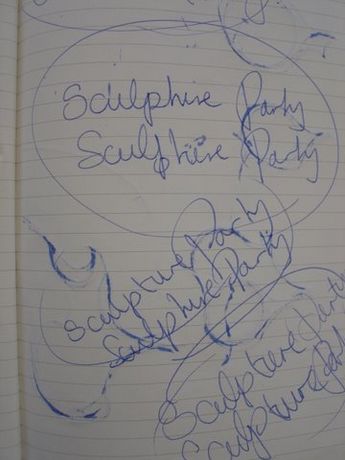 Sculpture Party
Sculpture Party
Sculpture Party
Sculpture Party
Sculpture Party
Sculpture